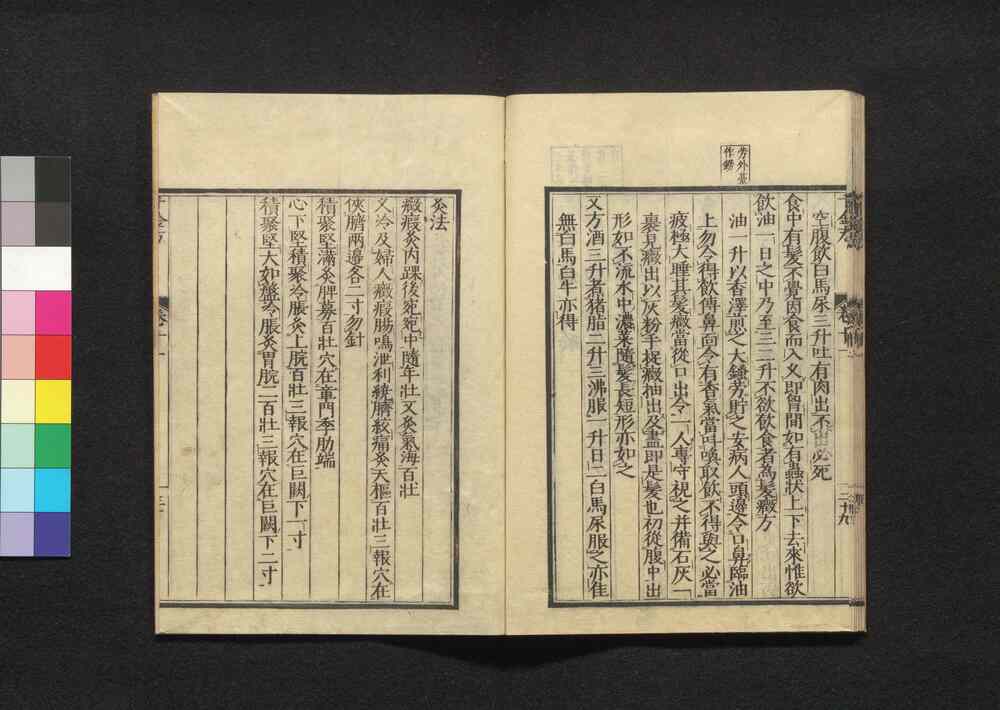 勞外臺
作鐒
空腹飲白馬尿三升吐有肉出不出必死
食中有髮不覺因食而入又即胷間如有蟲狀上下去來惟欲
飲油一日之中乃至三二升不欲飲食者為髮癥方
油一升以香澤煎之大鎉勞貯之安病人頭邊令口鼻臨油
上勿令得飲傅鼻面令有香氣當叫喚取飲不得與之必當
疲極大睡其髮癥當從口出令一人專守視之并備石灰一
裹見癥出以灰粉手捉癥抽出及盡即是髮也初從腹中出
形如不流水中濃菜隨髮長短形亦如之
又方酒三升煮猪脂二升三沸服一升日二白馬尿服之亦佳
無白馬白牛亦得
灸法
癥瘕灸内踝後宛宛中隨年壯又灸氣海百壯
又冷及婦人癥瘕腸鳴泄利繞臍絞痛灸天樞百壯三報穴在
俠臍兩邊各二寸勿針
積聚堅滿灸脾募百壯穴在章門季肋端
心下堅積聚冷脹灸上脘百壯三報穴在巨闕下一寸
積聚堅大如盤冷脹灸胃脘二百壯三報穴在巨闕下二寸